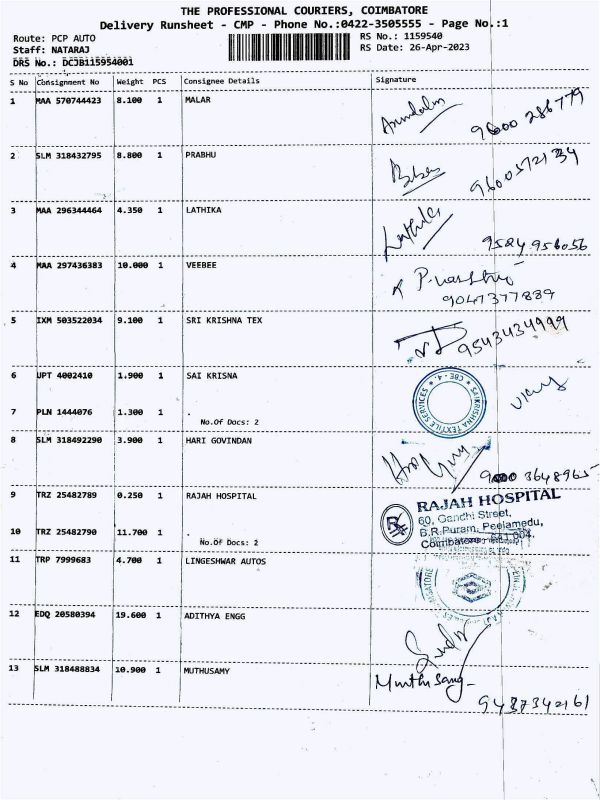 THE PROFESSIONAL COURIERS, COIMBATORE
Delivery Runsheet - CMP - Phone No.:0422-3505555 - Page No.:1
Route: PCP AUTO
RS No.: 1159540
Staff: NATARAJ
RS Date: 26-Apr-2023
DRS No.: DCJB115954001
S No Consignment No Weight PCS Consignee Details Signature
1 MAA 570744423 8.100 1 MALAR
9600 286779
2 SLM 318432795 8.800 1 PRABHU
9600572134
3 MAA 296344464 4.350 1 LATHIKA
Lathika
9524 956056
4 MAA 297436383 10.000 1 VEEBEE
9047377889
5 IXM 503522034 9.100 1 SRI KRISHNA TEX
9543434999
6 UPT 4002410 1.900 1 SAI KRISNA
SAIKRISHNA TEXTILE SERVICES * CBE - 4. *
7 PLN 1444076 1.300 1 .
No.Of Docs: 2
8 SLM 318492290 3.900 1 HARI GOVINDAN
3648965
9 TRZ 25482789 0.250 1 RAJAH HOSPITAL
RAJAH HOSPITAL
60, Gandhi Street,
B.R.Puram, Peelamedu,
Coimbatore - 641 004.
10 TRZ 25482790 11.700 1 .
No.Of Docs: 2
11 TRP 7999683 4.700 1 LINGESHWAR AUTOS
12 EDQ 20580394 19.600 1 ADITHYA ENGG
13 SLM 318488834 10.900 1 MUTHUSAMY
Muthusamy
9487342161